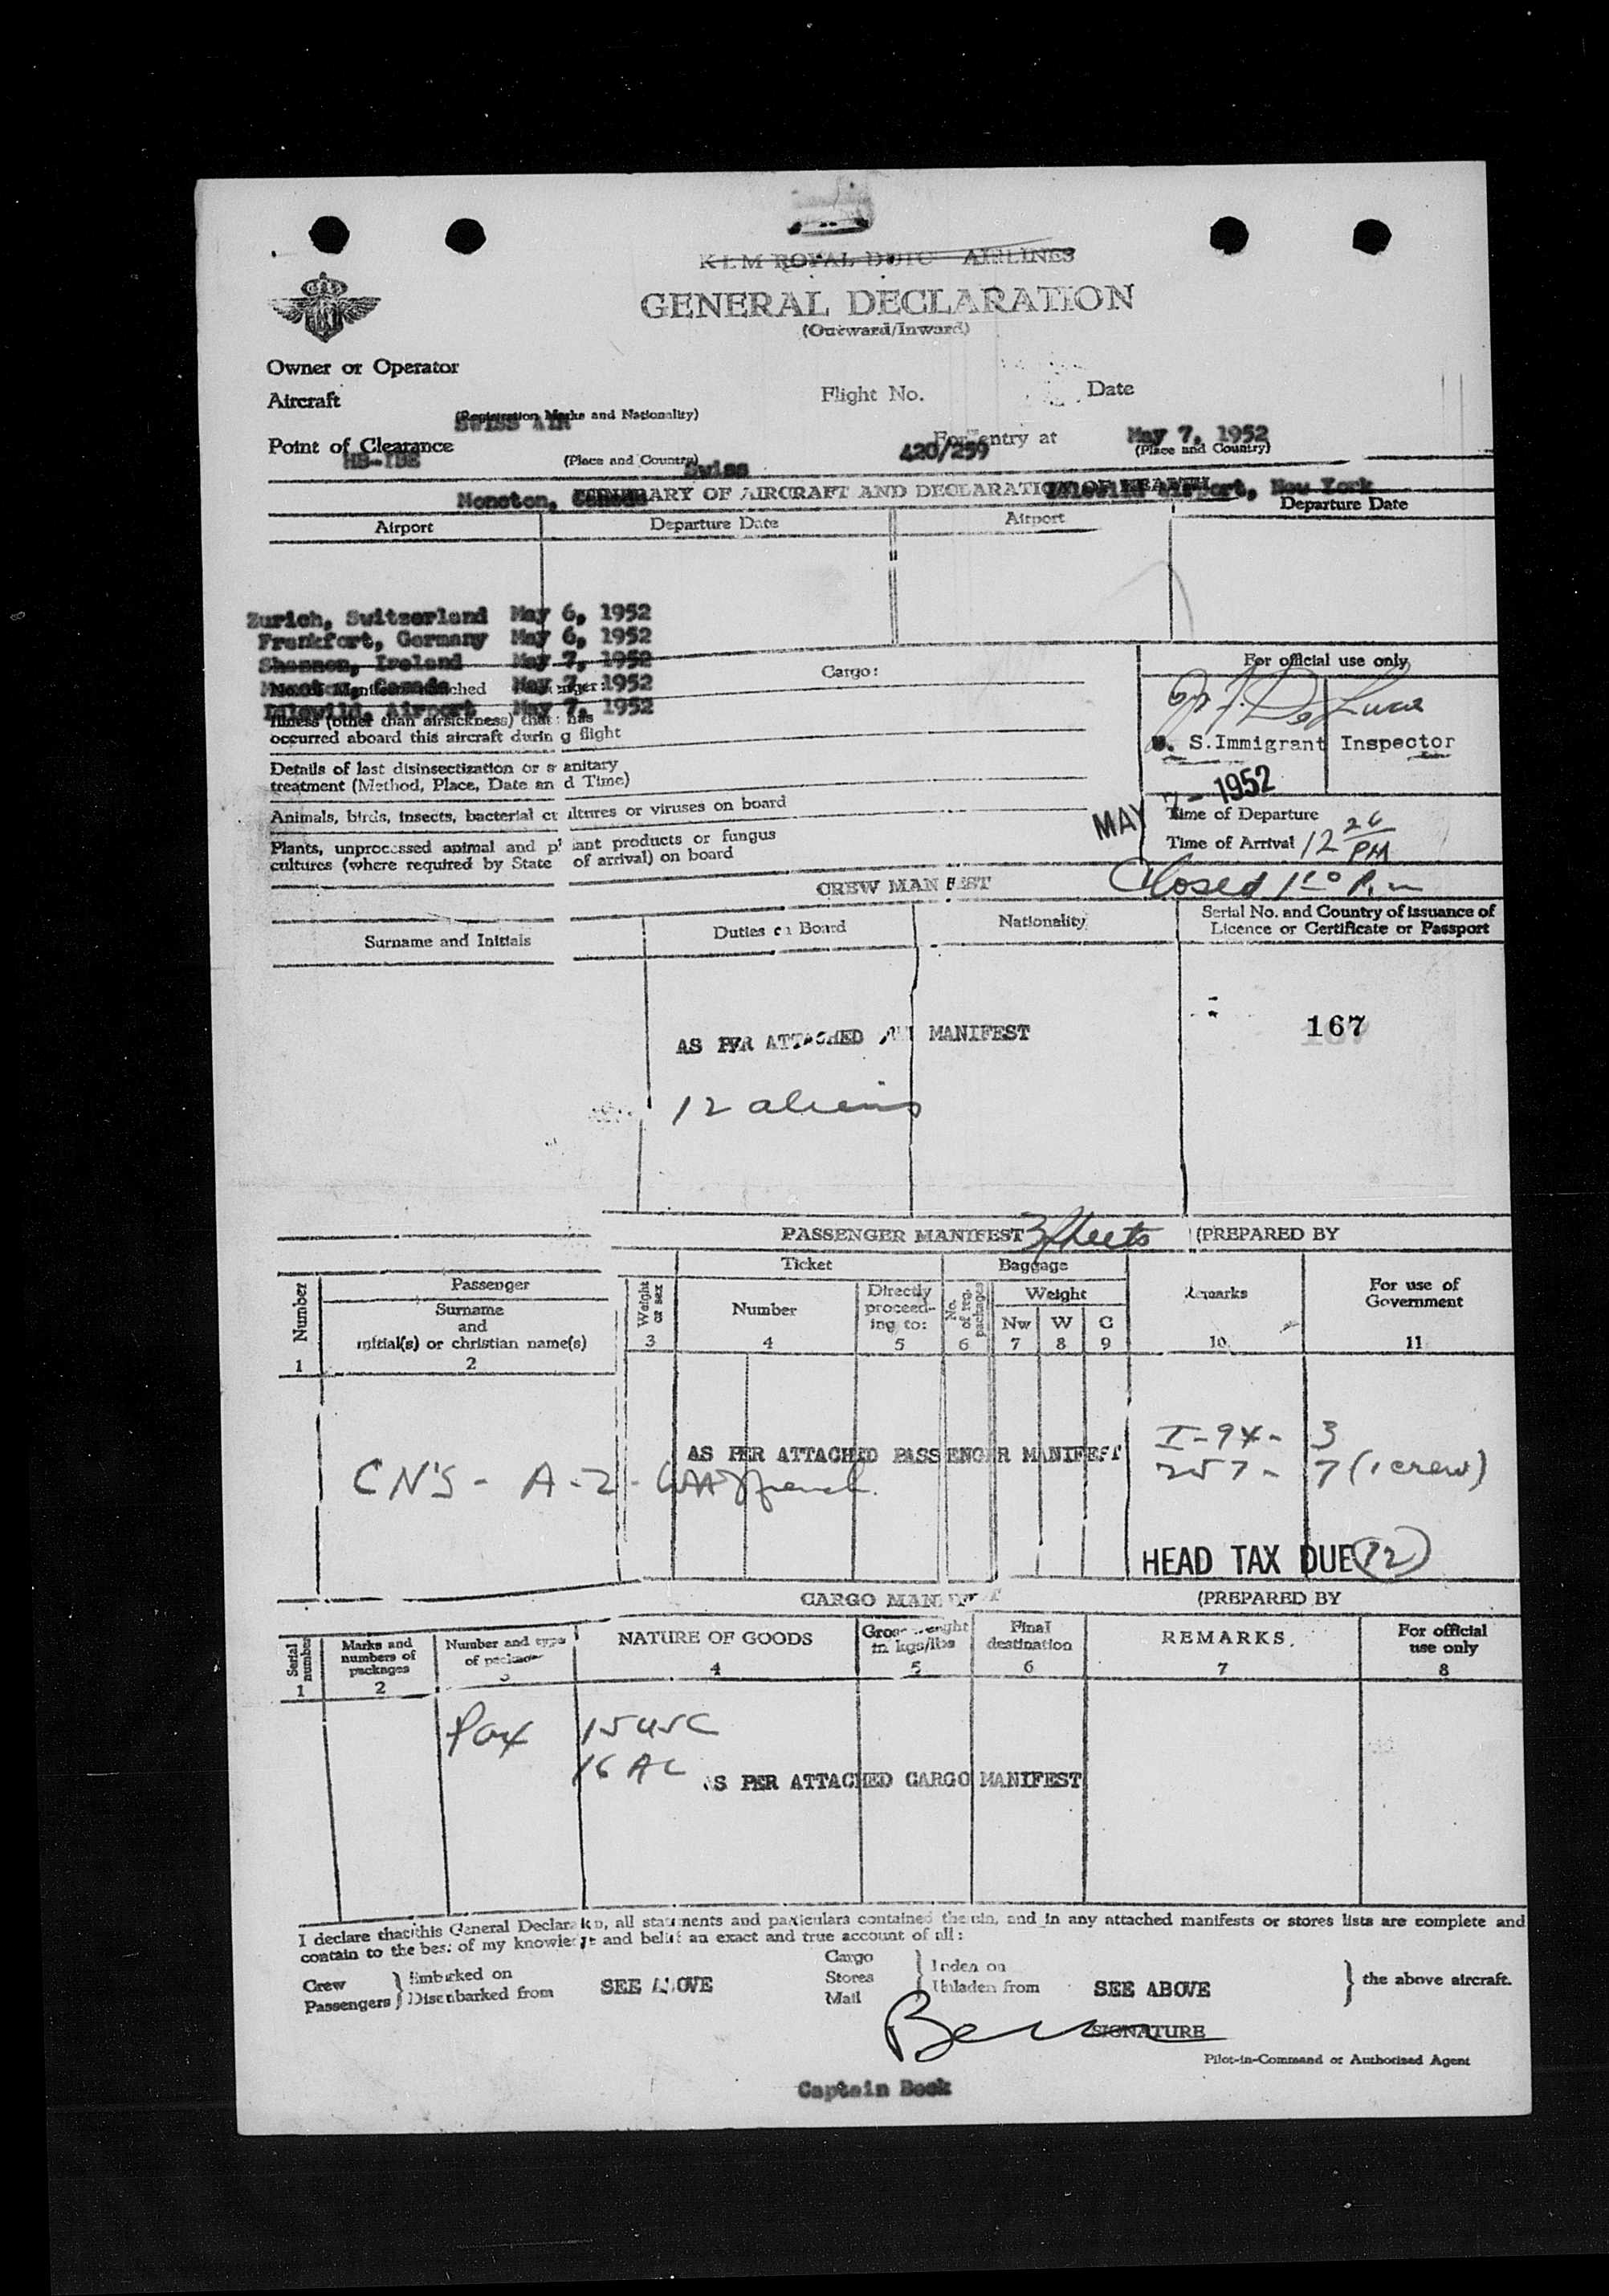 KLM ROYAL DUTCH AIRLINES
GENERAL DECLARATION
(Outward/Inward)
Owner or Operator
Aircraft
Flight No.
Date
(Registration Marks and Nationality)
SWISS AIR
Point of Clearance
For entry at
May 7, 1952
HB-
(Place and Country)
Swiss
420/259
(Place and Country)
ITINERARY OF AIRCRAFT AND DECLARATION OF HEALTH
Moncton, Canada
Idlewild Airport, New York
Airport
Departure Date
Airport
Departure Date
Zurich, Switzerland May 6, 1952
Frankfort, Germany May 6, 1952
Shannon, Ireland May 7, 1952
Moncton, Canada May 7, 1952
Idlewild, Airport May 7, 1952
Cargo:
For official use only
Illness (other than airsickness) that has
occurred aboard this aircraft during flight
U. S. Immigrant Inspector
Details of last disinsectization or sanitary
treatment (Method, Place, Date and Time)
MAY 7 - 1952
Animals, birds, insects, bacterial cultures or viruses on board
Time of Departure
Plants, unprocessed animal and plant products or fungus
cultures (where required by State of arrival) on board
Time of Arrival 12 26 PM
CREW MANIFEST
Closed 1 10 P.m
Surname and Initials
Duties on Board
Nationality
Serial No. and Country of issuance of
Licence or Certificate or Passport
167
AS PER ATTACHED MANIFEST
12 aliens
PASSENGER MANIFEST 3 sheets (PREPARED BY
Number
Passenger
Surname
and
initial(s) or christian name(s)
Weight or sex
Ticket
Number
Directly proceeding to:
Baggage
No. of reg. packages
Weight
Nw W C
Remarks
For use of Government
1 2 3 4 5 6 7 8 9 10 11
AS PER ATTACHED PASSENGER MANIFEST
I-94- 3
257- 7 (1 crew)
CN'S - A-2 -
HEAD TAX DUE 12
CARGO MANIFEST
(PREPARED BY
Serial number
Marks and numbers of packages
Number and type of packages
NATURE OF GOODS
Gross weight in kgs/lbs
Final destination
REMARKS
For official use only
1 2 3 4 5 6 7 8
Pax 15 USC
16 AL
AS PER ATTACHED CARGO MANIFEST
I declare that this General Declaration, all statements and particulars contained therein, and in any attached manifests or stores lists are complete and
contain to the best of my knowledge and belief an exact and true account of all:
Crew
Passengers
Embarked on
Disembarked from
SEE ABOVE
Cargo
Stores
Mail
Laden on
Unladen from
SEE ABOVE
the above aircraft.
SIGNATURE
Pilot-in-Command or Authorised Agent
Captain Beck